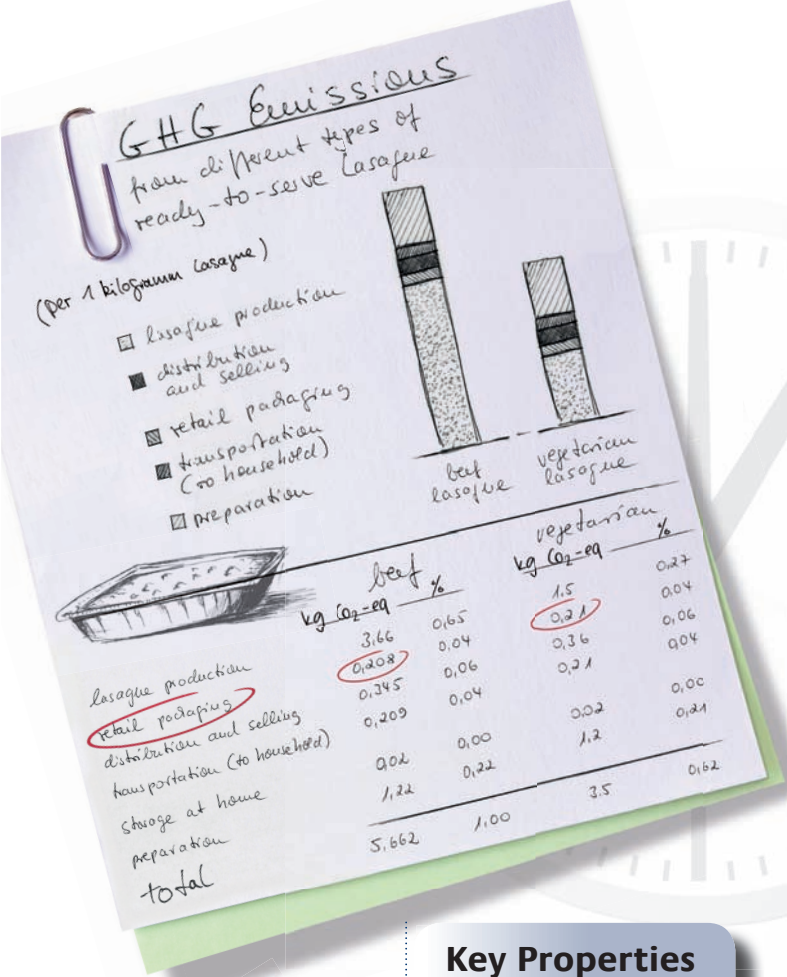 GHG Emissions
from different types of
ready-to-serve Lasagne
(per 1 kilogramm Lasagne)
lasagne production
distribution
and selling
retail packaging
transportation
(to household)
preparation
beef
lasagne
vegetarian
lasagne
beef vegetarian
kg CO2-eq % kg CO2-eq %
lasagne production 3,66 0,65 1.5 0,27
retail packaging 0,208 0,04 0,21 0,04
distribution and selling 0,345 0,06 0,36 0,06
transportation (to household) 0,209 0,04 0,21 0,04
storage at home 0,02 0,00 0,02 0,00
preparation 1,22 0,22 1.2 0,21
total 5,662 1,00 3.5 0,62
Key Properties